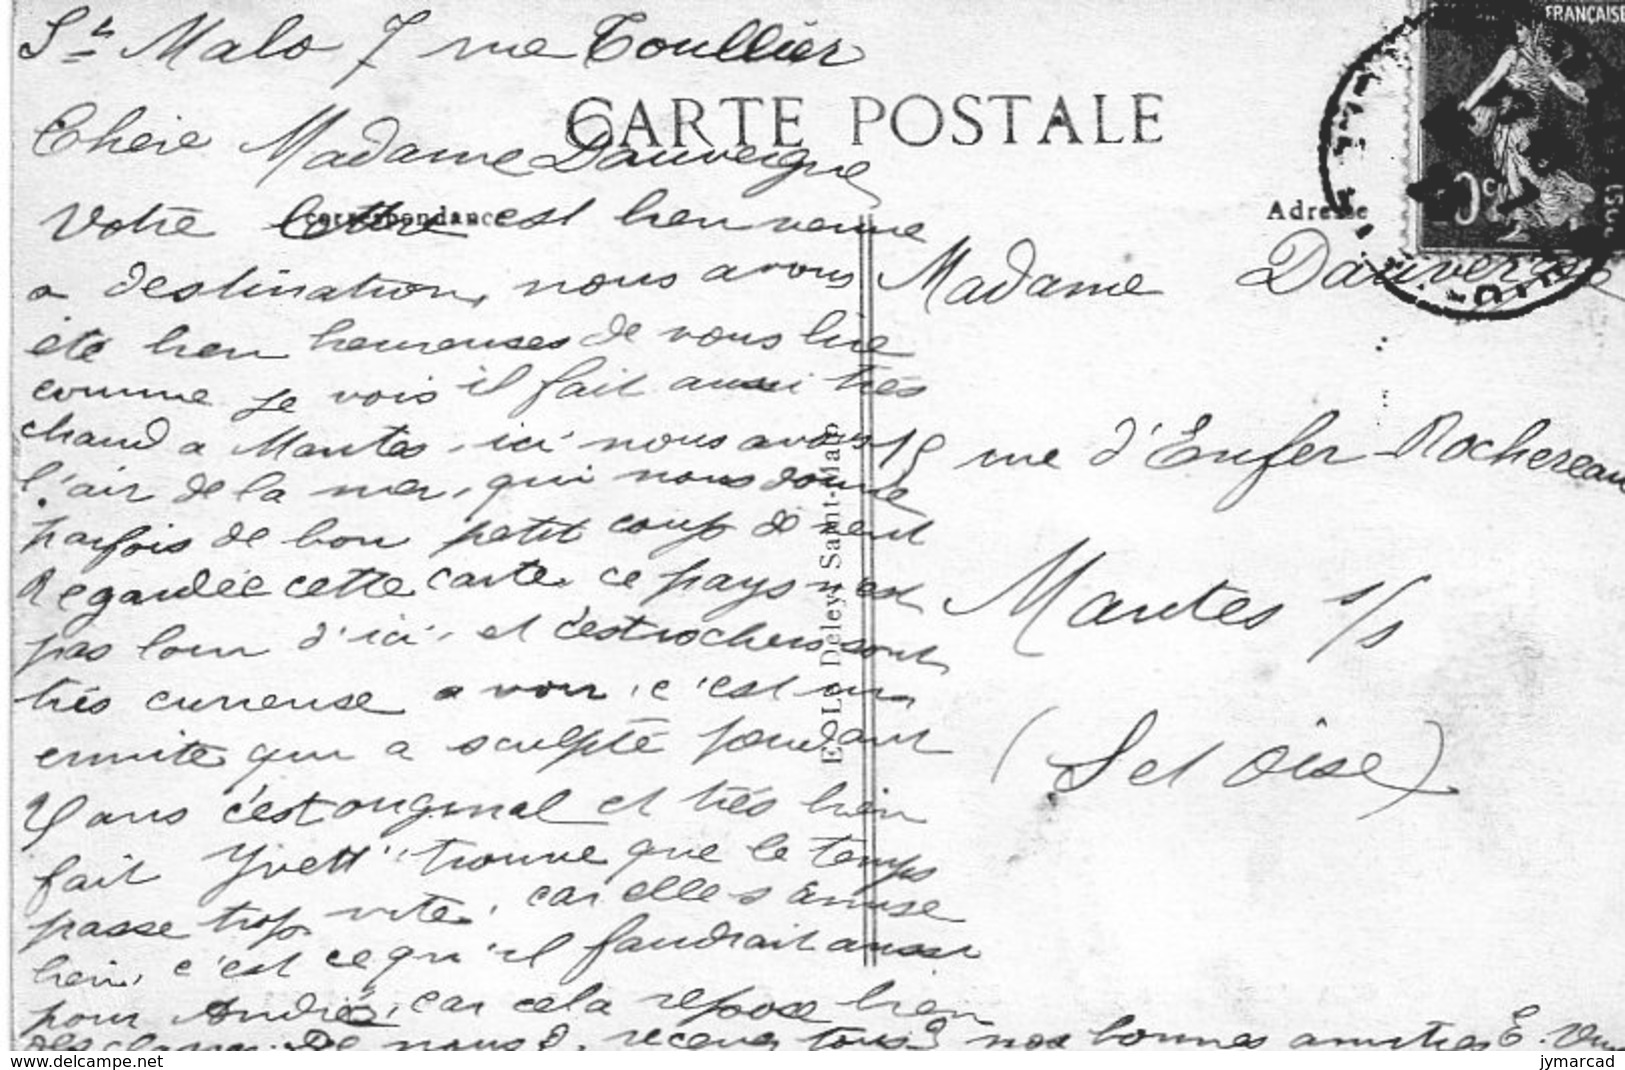 St Malo 7 rue Toullier
CARTE POSTALE
FRANÇAISE
Chère Madame Dauvergne
Correspondance
Votre lettre est bien venue
a destination, nous avons
été bien heureuses de vous lire
comme je vois il fait aussi très
chaud a Mantes, ici nous avons
l'air de la mer, qui nous donne
parfois de bon petit coup de vent
Regardée cette carte ce pays n'est
pas loin d'ici, et c'est rochers sont
très curieuse a voir, c'est un
ermite qui a sculpté pendant
ans c'est original et très bien
fait Yvett trouve que le temps
passe trop vite, car elle s'amuse
bien, c'est ce qu'il faudrait aussi
pour André, car cela repose bien
des classes. De nous 2, recevez tous 3 nos bonnes amitiés E.
Adresse
Madame Dauvergne
15 rue d'Enfer Rochereau
Mantes s/s
(S et Oise)
E. L. Deley, Saint-Malo
www.delcampe.net
jymarcad